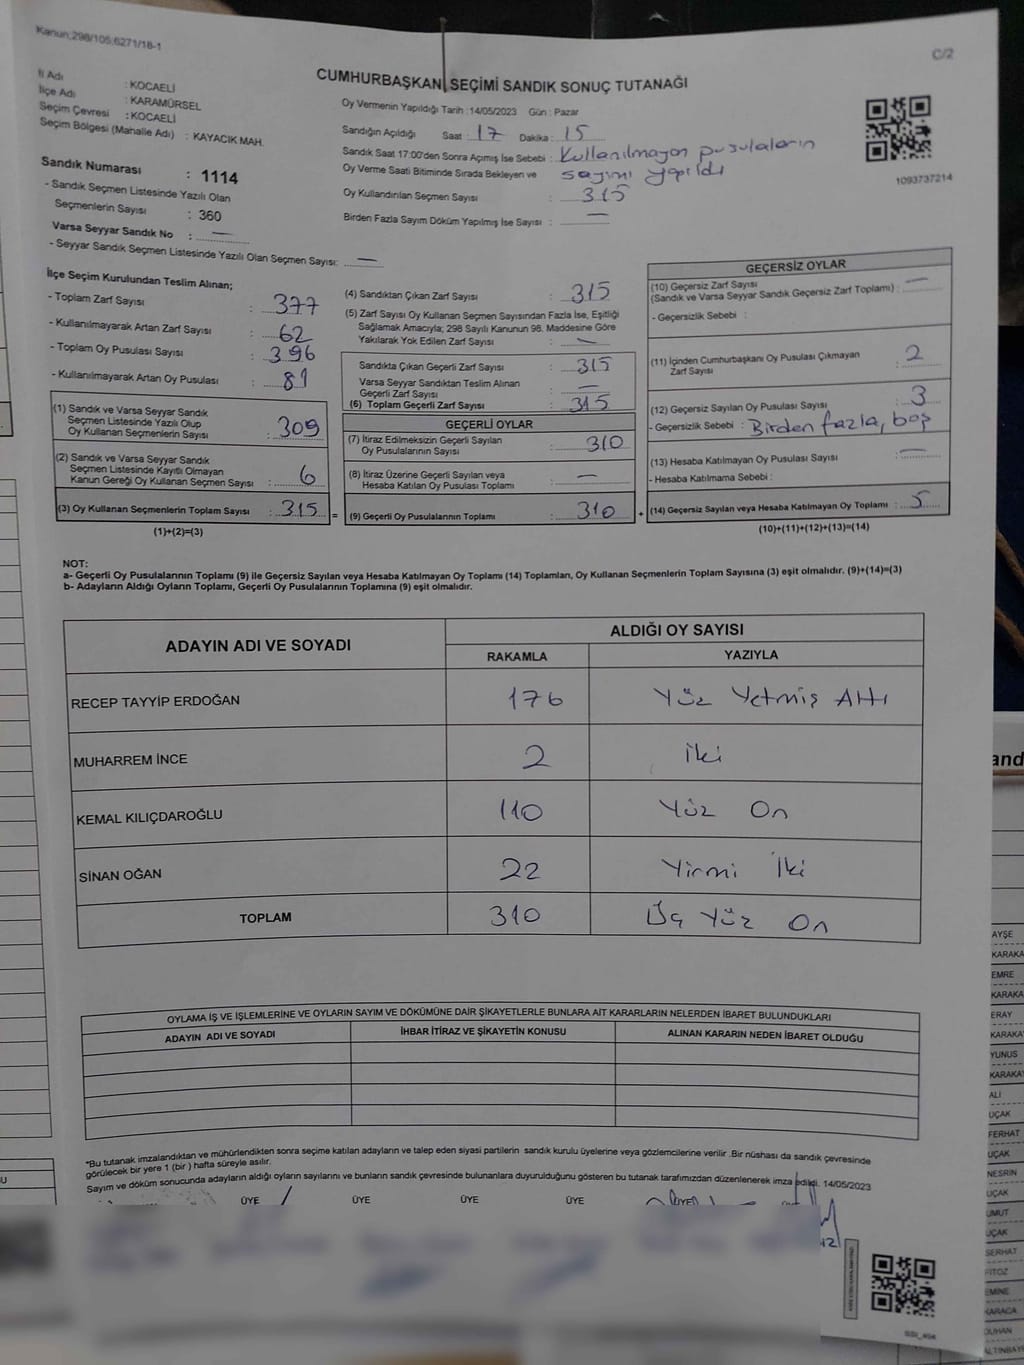 Kanun:298/105;6271/18-1
C/2
CUMHURBAŞKANI SEÇİMİ SANDIK SONUÇ TUTANAĞI
İl Adı : KOCAELİ
İlçe Adı : KARAMÜRSEL
Seçim Çevresi : KOCAELİ
Seçim Bölgesi (Mahalle Adı) : KAYACIK MAH.
Oy Vermenin Yapıldığı Tarih :14/05/2023 Gün : Pazar
Sandığın Açıldığı Saat : 17 Dakika : 15
Sandık Saat 17:00'den Sonra Açımış İse Sebebi : Kullanılmayan pusulaların
sayımı yapıldı
Oy Verme Saati Bitiminde Sırada Bekleyen ve
Oy Kullandırılan Seçmen Sayısı : 315
Birden Fazla Sayım Döküm Yapılmış İse Sayısı : —
1093737214
Sandık Numarası : 1114
- Sandık Seçmen Listesinde Yazılı Olan
Seçmenlerin Sayısı : 360
Varsa Seyyar Sandık No : —
- Seyyar Sandık Seçmen Listesinde Yazılı Olan Seçmen Sayısı: —
İlçe Seçim Kurulundan Teslim Alınan;
- Toplam Zarf Sayısı : 377
- Kullanılmayarak Artan Zarf Sayısı : 62
- Toplam Oy Pusulası Sayısı : 396
- Kullanılmayarak Artan Oy Pusulası : 81
(1) Sandık ve Varsa Seyyar Sandık
Seçmen Listesinde Yazılı Olup
Oy Kullanan Seçmenlerin Sayısı : 309
(2) Sandık ve Varsa Seyyar Sandık
Seçmen Listesinde Kayıtlı Olmayan
Kanun Gereği Oy Kullanan Seçmen Sayısı : 6
(3) Oy Kullanan Seçmenlerin Toplam Sayısı : 315
(1)+(2)=(3)
(4) Sandıktan Çıkan Zarf Sayısı : 315
(5) Zarf Sayısı Oy Kullanan Seçmen Sayısından Fazla İse, Eşitliği
Sağlamak Amacıyla; 298 Sayılı Kanunun 98. Maddesine Göre
Yakılarak Yok Edilen Zarf Sayısı : —
Sandıkta Çıkan Geçerli Zarf Sayısı : 315
Varsa Seyyar Sandıktan Teslim Alınan
Geçerli Zarf Sayısı : —
(6) Toplam Geçerli Zarf Sayısı : 315
GEÇERLİ OYLAR
(7) İtiraz Edilmeksizin Geçerli Sayılan
Oy Pusulalarının Sayısı : 310
(8) İtiraz Üzerine Geçerli Sayılan veya
Hesaba Katılan Oy Pusulası Toplamı : —
= (9) Geçerli Oy Pusulalarının Toplamı : 310 +
GEÇERSİZ OYLAR
(10) Geçersiz Zarf Sayısı
(Sandık ve Varsa Seyyar Sandık Geçersiz Zarf Toplamı) : —
- Geçersizlik Sebebi :
(11) İçinden Cumhurbaşkanı Oy Pusulası Çıkmayan
Zarf Sayısı : 2
(12) Geçersiz Sayılan Oy Pusulası Sayısı : 3
- Geçersizlik Sebebi : Birden fazla, boş
(13) Hesaba Katılmayan Oy Pusulası Sayısı : —
- Hesaba Katılmama Sebebi :
(14) Geçersiz Sayılan veya Hesaba Katılmayan Oy Toplamı : 5
(10)+(11)+(12)+(13)=(14)
NOT:
a- Geçerli Oy Pusulalarının Toplamı (9) ile Geçersiz Sayılan veya Hesaba Katılmayan Oy Toplamı (14) Toplamları, Oy Kullanan Seçmenlerin Toplam Sayısına (3) eşit olmalıdır. (9)+(14)=(3)
b- Adayların Aldığı Oyların Toplamı, Geçerli Oy Pusulalarının Toplamına (9) eşit olmalıdır.
ADAYIN ADI VE SOYADI ALDIĞI OY SAYISI
RAKAMLA YAZIYLA
RECEP TAYYİP ERDOĞAN 176 Yüz Yetmiş Altı
MUHARREM İNCE 2 iki
KEMAL KILIÇDAROĞLU 110 Yüz On
SİNAN OĞAN 22 Yirmi İki
TOPLAM 310 Üç Yüz On
OYLAMA İŞ VE İŞLEMLERİNE VE OYLARIN SAYIM VE DÖKÜMÜNE DAİR ŞİKAYETLERLE BUNLARA AİT KARARLARIN NELERDEN İBARET BULUNDUKLARI
ADAYIN ADI VE SOYADI İHBAR İTİRAZ VE ŞİKAYETİN KONUSU ALINAN KARARIN NEDEN İBARET OLDUĞU
*Bu tutanak imzalandıktan ve mühürlendikten sonra seçime katılan adayların ve talep eden siyasi partilerin sandık kurulu üyelerine veya gözlemcilerine verilir .Bir nüshası da sandık çevresinde
görülecek bir yere 1 (bir ) hafta süreyle asılır.
Sayım ve döküm sonucunda adayların aldığı oyların sayılarını ve bunların sandık çevresinde bulunanlara duyurulduğunu gösteren bu tutanak tarafımızdan düzenlenerek imza edildi. 14/05/2023
ÜYE ÜYE ÜYE ÜYE ÜYE
and
AYŞE
KARAKA
EMRE
KARAKA
ERAY
KARAKA
YUNUS
KARAKAY
ALİ
UÇAK
FERHAT
UÇAK
NESRİN
UÇAK
UMUT
UÇAK
SERHAT
FİTOZ
EMİNE
KARACA
DUHAN
ALTINBAY